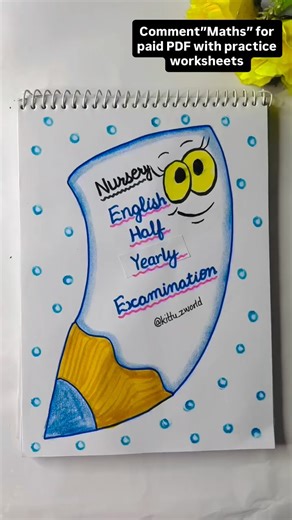 Comment”Maths” for
paid PDF with practice
worksheets
Nursery
English
Half
Yearly
Examination
@kittu_zworld